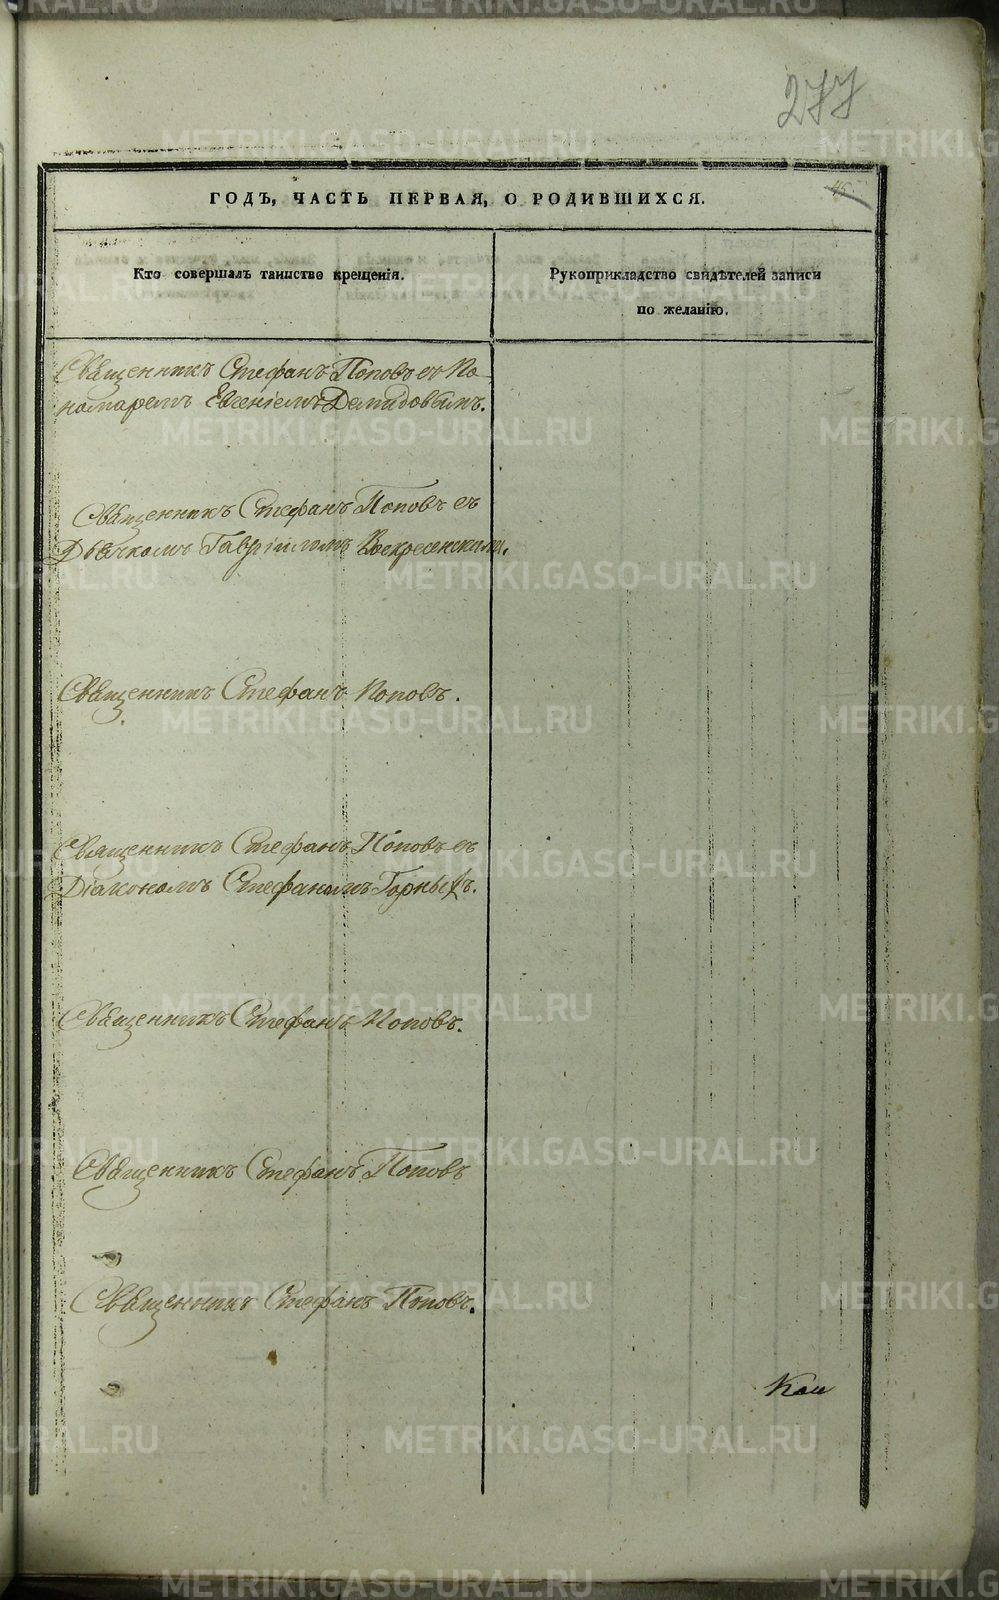 277
45
ГОДЪ, ЧАСТЬ ПЕРВАЯ, О РОДИВШИХСЯ.
Кто совершалъ таинство крещенія.
Рукоприкладство свидѣтелей записи
по желанію.
Священникъ Стефанъ Поповъ съ По-
номаремъ Евгеніемъ Демидовымъ.
Священникъ Стефанъ Поповъ съ
Дьячкомъ Гавріиломъ Воскресенскимъ.
Священникъ Стефанъ Поповъ.
Священникъ Стефанъ Поповъ съ
Діакономъ Стефаномъ Горныхъ.
Священникъ Стефанъ Поповъ.
Священникъ Стефанъ Поповъ
Священникъ Стефанъ Поповъ.
METRIKI.GASO-URAL.RU